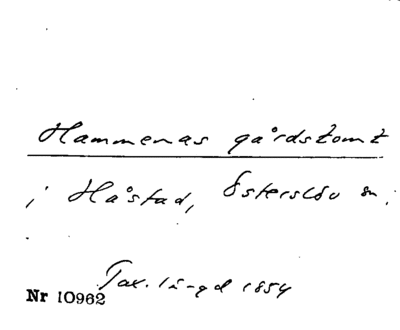 Hammenas gårdstomt
i Håstad, Österslöv sn.
Tax. längd 1854
Nr 10962